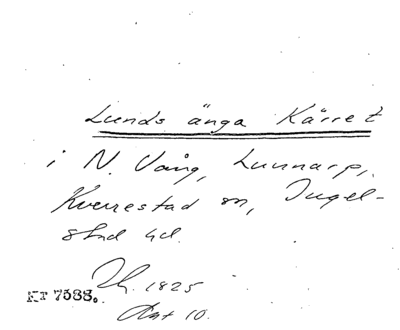 Lunds änga Kärret
i N. Vång, Lunnarp,
Kverrestad sn, Ingel-
stad hd.
1825
KT 7588.
Akt 10.